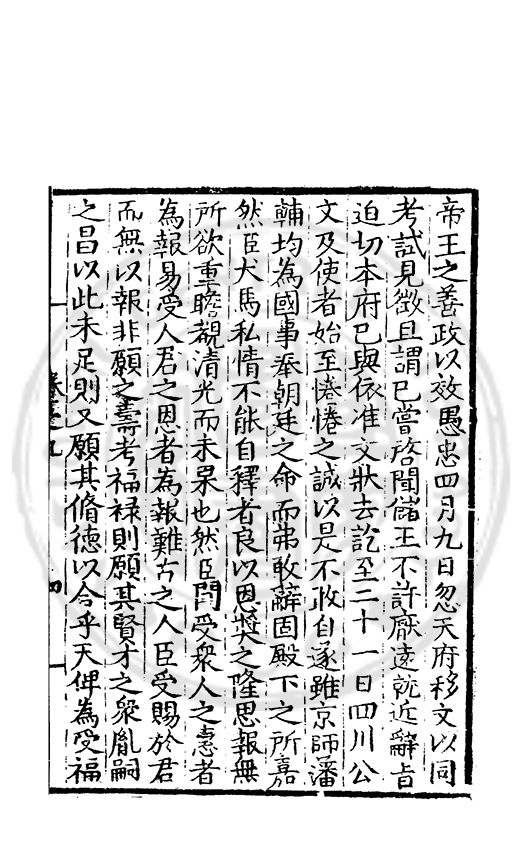 帝王之善政以效愚忠四月九日忽天府移文以同
考試見徵且謂已嘗啓聞儲王不許厭遠就近辭旨
迫切本府已與依准文狀去訖至二十一日四川公
文及使者始至惓惓之誠以是不敢自遂雖京師潘
輔均為國事奉朝廷之命而弗敢辭固殿下之所嘉
然臣犬馬私情不能自釋者良以恩奬之隆思報無
所欲重瞻覩清光而未果也然臣聞受衆人之惠者
為報易受人君之恩者為報難古之人臣受賜於君
而無以報非願之壽考福禄則願其賢才之衆胤嗣
之昌以此未足則又願其脩德以合乎天俾為受福